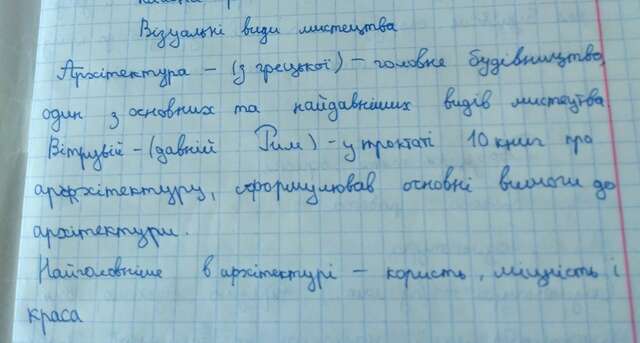 Візуальні види мистецтва
Архітектура - (з грецької) - головне будівництво,
один з основних та найдавніших видів мистецтва.
Вітрувій - (давній Рим) - у трактаті 10 книг про
архітектуру, сформулював основні вимоги до
архітектури.
Найголовніше в архітектурі - користь, міцність і
краса